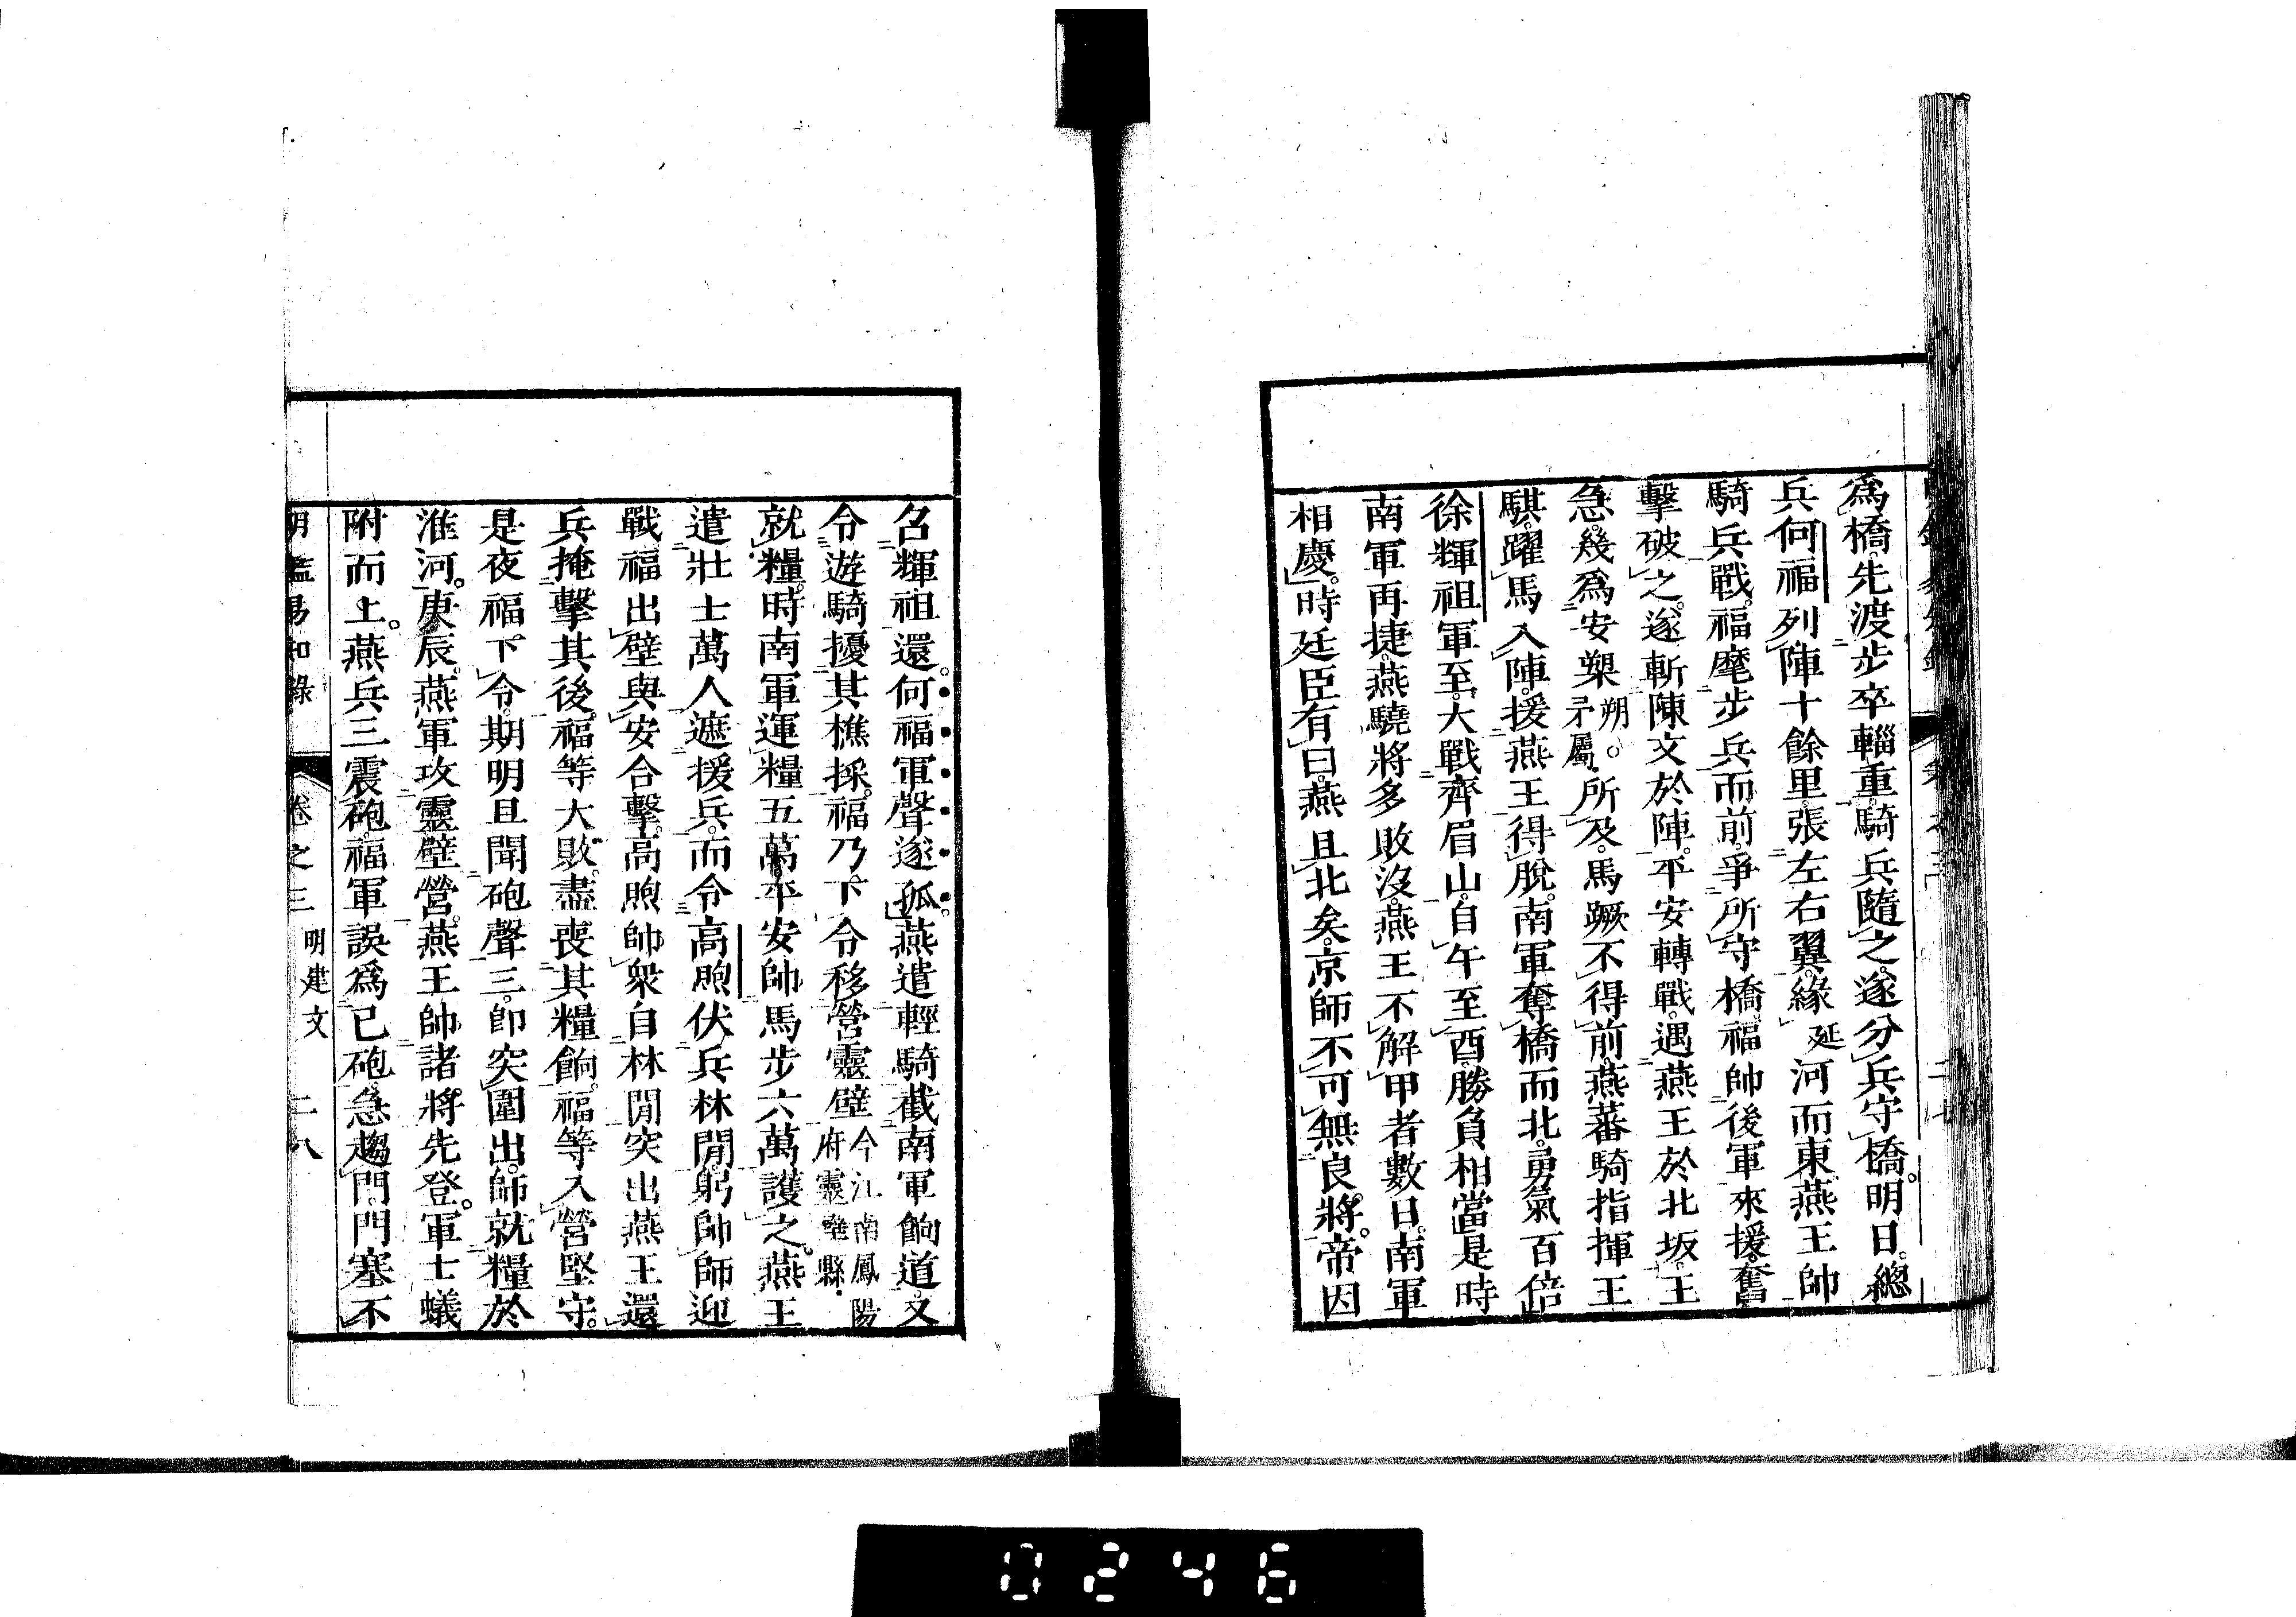 爲橋先渡步卒輜重騎兵隨之遂分兵守橋明日總
兵何福列陣十餘里張左右翼緣延河而東燕王帥
騎兵戰福麾步兵而前爭所守橋福帥後軍來援奮
擊破之遂斬陳文於陣平安轉戰遇燕王於北坂王
急幾爲安槊朔。矛屬。所及馬蹶不得前燕蕃騎指揮王
騏躍馬入陣援燕王得脫南軍奪橋而北勇氣百倍
徐輝祖軍至大戰齊眉山自午至酉勝負相當是時
南軍再捷燕驍將多敗沒燕王不解甲者數日南軍
相慶時廷臣有曰燕且北矣京師不可無良將帝因
召輝祖還何福軍聲遂孤燕遣輕騎截南軍餉道又
令遊騎擾其樵採福乃下令移營靈壁今江南鳳陽府靈壁縣
就糧時南軍運糧五萬平安帥馬步六萬護之燕王
遣壯士萬人遮援兵而令高煦伏兵林閒躬帥師迎
戰福出壁與安合擊高煦帥衆自林閒突出燕王還
兵掩擊其後福等大敗盡喪其糧餉福等入營堅守
是夜福下令期明旦聞砲聲三卽突圍出師就糧於
淮河庚辰燕軍攻靈壁營燕王帥諸將先登軍士蟻
附而上燕兵三震砲福軍誤爲已砲急趨門門塞不
明鑑易知錄 卷之三 明建文 二八
0246